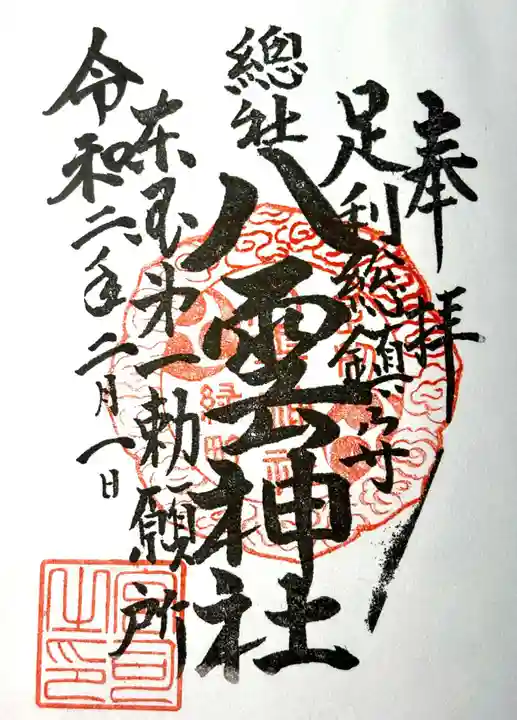 奉拝
足利総鎮守
總社
八雲神社
東国第一勅願所
令和二年二月一日